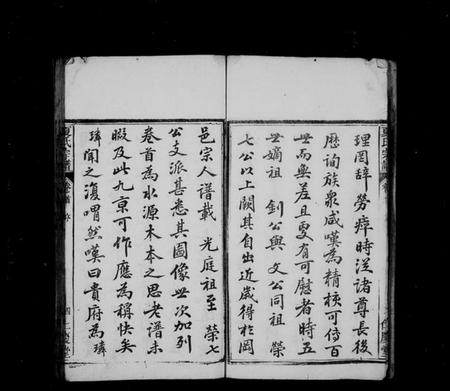 理罔辭勞瘁時從諸尊長後
歷詢族衆咸嘆為精核可傳百
世而無差且更有可慰者時五
世嫡祖 釗公與 文公同祖 榮
七公以上闕其自出近歲得於岡
邑宗人譜載 光庭祖至 榮七
公支派甚悉其圖像世次加列
卷首為水源木本之思老譜未
暇及此九京可作應為稱快矣
璘聞之復喟然嘆曰貴府為璘
夏氏宗譜
卷首 序